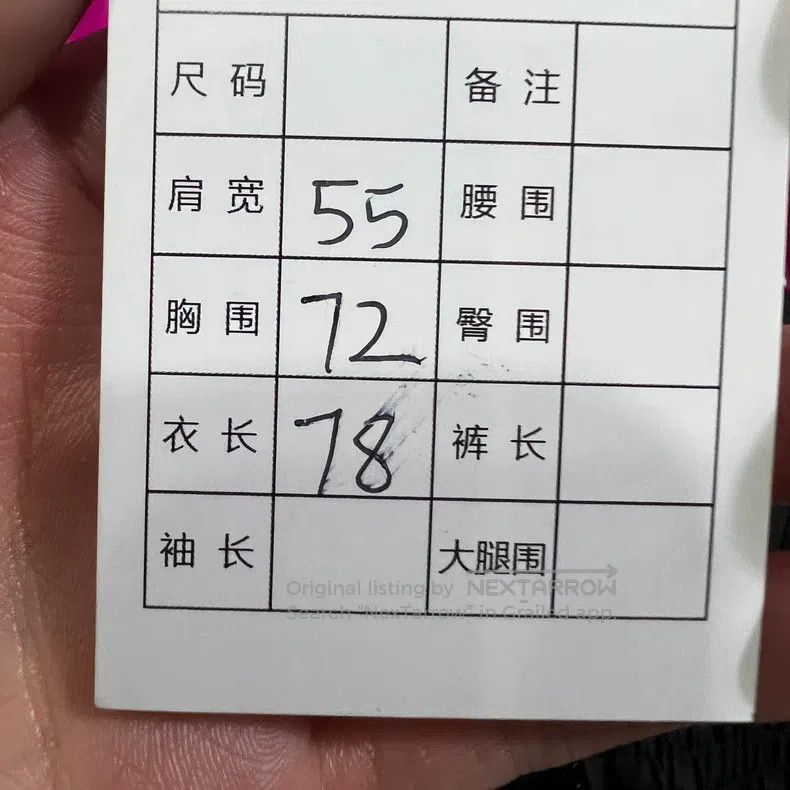 尺码 备注
肩宽 55 腰围
胸围 72 臀围
衣长 78 裤长
袖长 大腿围
Original listing by NEXTARROW
Search "NexTarrow" in Grailed app.